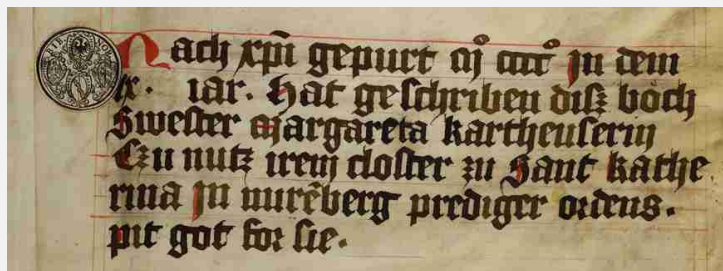 Nach xp̄i gepurt mͦ ccccͦ Jn dem
lx. iar. Hat geschriben diſz bůch
Swester Margareta kartheuserin
Czu nutz irem closter zu Sant kathe
rina Jn nurēberg prediger ordens.
pit got for sie.